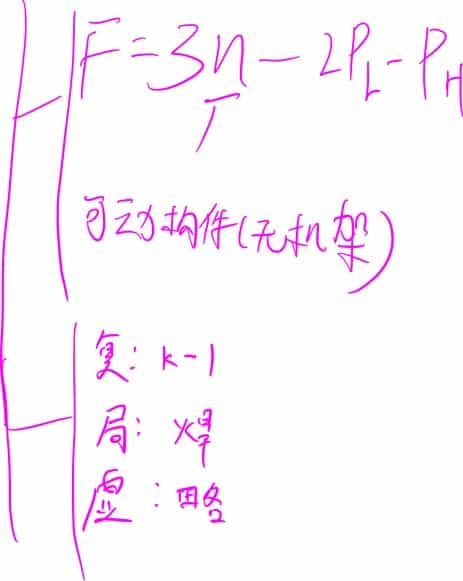 F=3n-2P_L-P_H
可动构件(无机架)
复: k-1
局: 焊
虚:略